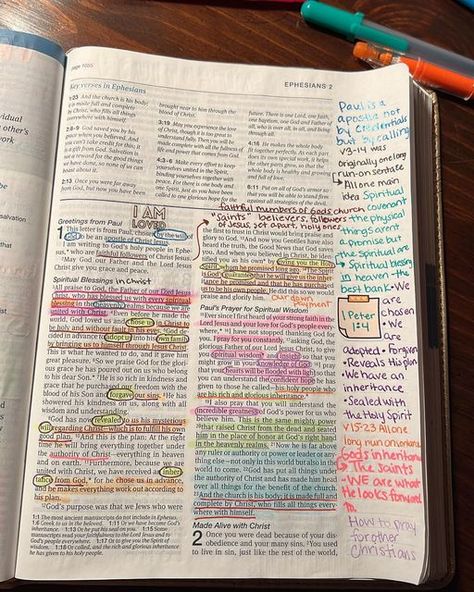 vidual
other's
work
vation
page 1055
EPHESIANS 2
Key verses in Ephesians
1:23 And the church is his body;
it is made full and complete
by Christ, who fills all things
everywhere with himself.
2:8-9 God saved you by his
grace when you believed. And
you can't take credit for this; it
is a gift from God. Salvation is
not a reward for the good things
we have done, so none of us can
boast about it.
2:13 Once you were far away
from God, but now you have been
brought near to him through the
blood of Christ.
3:19 May you experience the love
of Christ, though it is too great to
understand fully. Then you will be
made complete with all the fullness of
life and power that comes from God.
4:3-6 Make every effort to keep
yourselves united in the Spirit,
binding yourselves together with
peace. For there is one body and
one Spirit, just as you have been
called to one glorious hope for the
future. There is one Lord, one faith,
one baptism, one God and Father of
all, who is over all, in all, and living
through all.
4:16 He makes the whole body
fit together perfectly. As each part
does its own special work, it helps
the other parts grow, so that the
whole body is healthy and growing
and full of love.
6:11 Put on all of God's armor so
that you will be able to stand firm
against all strategies of the devil.
I AM
LOVED
Greetings from Paul
1 This letter is from Paul, chosen by the will
of God to be an apostle of Christ Jesus.
I am writing to God's holy people in Ephe-
sus,* who are faithful followers of Christ Jesus.
2May God our Father and the Lord Jesus
Christ give you grace and peace.
Spiritual Blessings in Christ
3All praise to God, the Father of our Lord Jesus
Christ, who has blessed us with every spiritual
blessing in the heavenly realms because we are
united with Christ. 4Even before he made the
world, God loved us and chose us in Christ to
be holy and without fault in his eyes. 5God de-
cided in advance to adopt us into his own family
by bringing us to himself through Jesus Christ.
This is what he wanted to do, and it gave him
great pleasure. 6So we praise God for the glori-
ous grace he has poured out on us who belong
to his dear Son.* 7He is so rich in kindness and
grace that he purchased our freedom with the
blood of his Son and forgave our sins. 8He has
showered his kindness on us, along with all
wisdom and understanding.
9God has now revealed to us his mysterious
will regarding Christ—which is to fulfill his own
good plan. 10And this is the plan: At the right
time he will bring everything together under
the authority of Christ—everything in heaven
and on earth. 11Furthermore, because we are
united with Christ, we have received an inheri-
tance from God,* for he chose us in advance,
and he makes everything work out according to
his plan.
12God's purpose was that we Jews who were
1:1 The most ancient manuscripts do not include in Ephesus.
1:6 Greek to us in the beloved.
faithful numbers of Gods church
"saints" believers, followers
of Jesus, set apart, holy ones
the first to trust in Christ would bring praise and
glory to God. 13And now you Gentiles have also
heard the truth, the Good News that God saves
you. And when you believed in Christ, he identi-
fied you as his own* by giving you the Holy
Spirit, whom he promised long ago. 14The Spirit
is God's guarantee that he will give us the inher-
itance he promised and that he has purchased
us to be his own people. He did this so we would
praise and glorify him.
our down
payment
Paul's Prayer for Spiritual Wisdom
15Ever since I first heard of your strong faith in the
Lord Jesus and your love for God's people every-
where,* 16I have not stopped thanking God for
you. I pray for you constantly, 17asking God, the
glorious Father of our Lord Jesus Christ, to give
you spiritual wisdom* and insight so that you
might grow in your knowledge of God. 18I pray
that your hearts will be flooded with light so that
you can understand the confident hope he has
given to those he called—his holy people who
are his rich and glorious inheritance.*
19I also pray that you will understand the
incredible greatness of God's power for us who
believe him. This is the same mighty power
20that raised Christ from the dead and seated
him in the place of honor at God's right hand
in the heavenly realms. 21Now he is far above
any ruler or authority or power or leader or any-
thing else—not only in this world but also in the
world to come. 22God has put all things under
the authority of Christ and has made him head
over all things for the benefit of the church.
23And the church is his body; it is made full and
complete by Christ, who fills all things every-
where with himself.
Made Alive with Christ
2 Once you were dead because of your dis-
obedience and your many sins. 2You used
to live in sin, just like the rest of the world,
Paul is a
apostle not
by credentials
but by calling
v3-14 was
originally one long
run-on sentence
→ All one main
idea Spiritual
covenant
the physical
things aren't
a promise but
the spiritual are
→ Spiritual blessing
in heaven the
best bank • We
are
chosen
• We
are
1 Peter
1:4
adopted • Forgiven
• Reveals his plan
• We have an
inheritance
• Sealed with
the Holy Spirit
V15-23 All one
long run on
Gods inheritance
→ The saints
- WE are what
He looks forward
to.
How to pray
for other
Christians